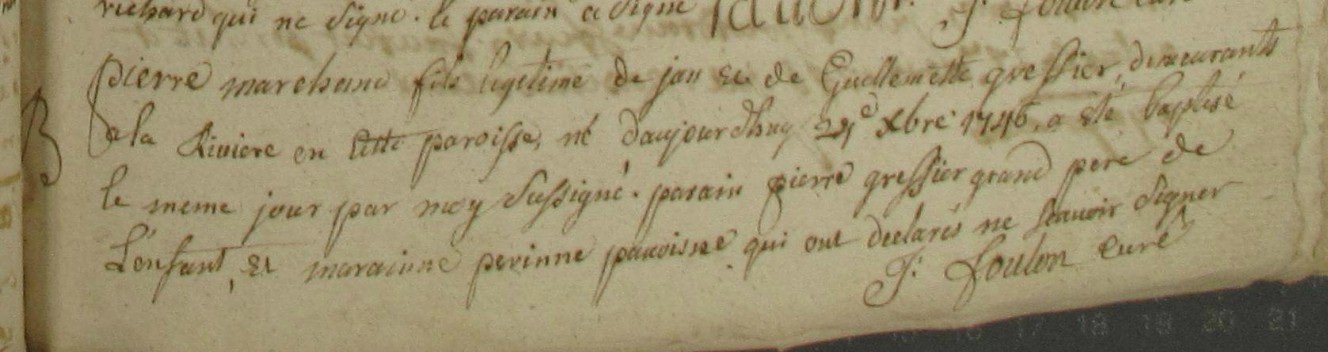 richard qui ne signe. le parain a signé
B
pierre marchand fils legitime de jan et de Guillemette gressier, demeurants
a la Riviere en cette paroisse, né daujourdhuy Xbre 1746, a eté baptisé
le meme jour par moy sussigné. parain pierre gressier grand pere de
L'enfant, et marainne perinne qui ont declarés ne scavoir signer
J. foulon curé
17 18 19 20 21